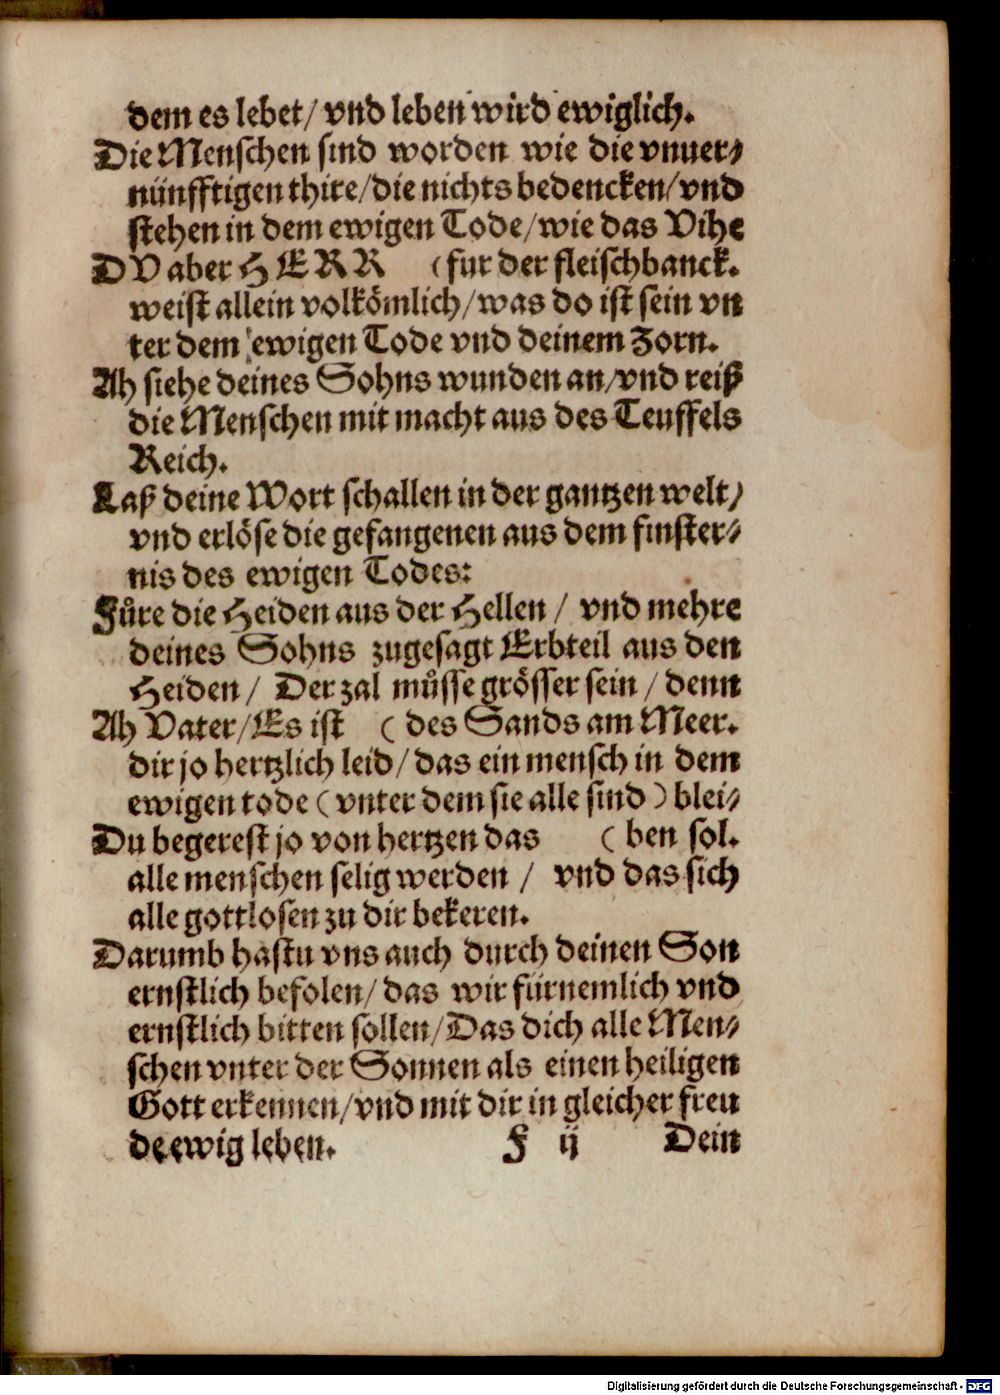 dem es lebet/ vnd leben wird ewiglich.
Die Menschen sind worden wie die vnuer⸗
nünfftigen thire/die nichts bedencken/vnd
stehen in dem ewigen Tode/wie das Vihe
DV aber HERR (fur der fleischbanck.
weist allein volkömlich/was do ist sein vn
ter dem ewigen Tode vnd deinem Zorn.
Ah siehe deines Sohns wunden an/vnd reiß
die Menschen mit macht aus des Teuffels
Reich.
Laß deine Wort schallen in der gantzen welt/
vnd erlöse die gefangenen aus dem finster⸗
nis des ewigen Todes:
Fůre die Heiden aus der Hellen / vnd mehre
deines Sohns zugesagt Erbteil aus den
Heiden / Der zal můsse grösser sein / denn
Ah Vater/Es ist ( des Sands am Meer.
dir jo hertzlich leid/das ein mensch in dem
ewigen tode (vnter dem sie alle sind) blei⸗
Du begerest jo von hertzen das ( ben sol.
alle menschen selig werden / vnd das sich
alle gottlosen zu dir bekeren.
Darumb hastu vns auch durch deinen Son
ernstlich befolen/das wir fürnemlich vnd
ernstlich bitten sollen/Das dich alle Men⸗
schen vnter der Sonnen als einen heiligen
Gott erkennen/vnd mit dir in gleicher freu
de ewig leben. F ij Dein
Digitalisierung gefördert durch die Deutsche Forschungsgemeinschaft - DFG